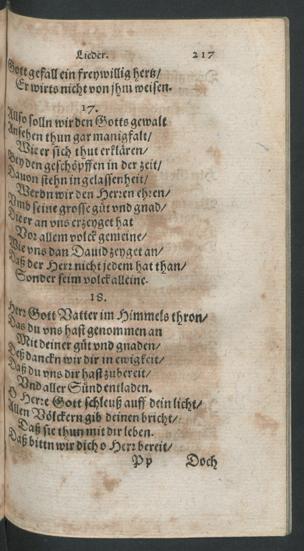 Lieder. 217
Gott gefall ein freywillig hertz/
Er wirts nicht von jhn weisen.
17.
Also solln wir den Gotts gewalt
Ansehen thun gar manigfalt/
Wie er sich thut erklären/
Bey den geschöpffen in der zeit/
Dauon stehn in gelassenheit/
Werdn wir den Herren ehren/
Vmb seine grosse güt vnd gnad/
Die er an vns erzeyget hat
Vor allem volck gemeine/
Wie vns dan Dauid zeyget an/
Daß der Herr nicht jedem hat than/
Sonder seim volck alleine.
18.
Herr Gott Vatter im Himmels thron/
Das du vns hast genommen an
Mit deiner güt vnd gnaden/
Deß danckn wir dir in ewigkeit/
Daß du vns dir hast zubereit/
Vnd aller Sünd entladen.
O Herre Gott schleuß auff dein licht/
Allen Völckern gib deinen bricht/
Daß sie thun mit dir leben.
Daß bittn wir dich o Herr bereit/
Pp Doch